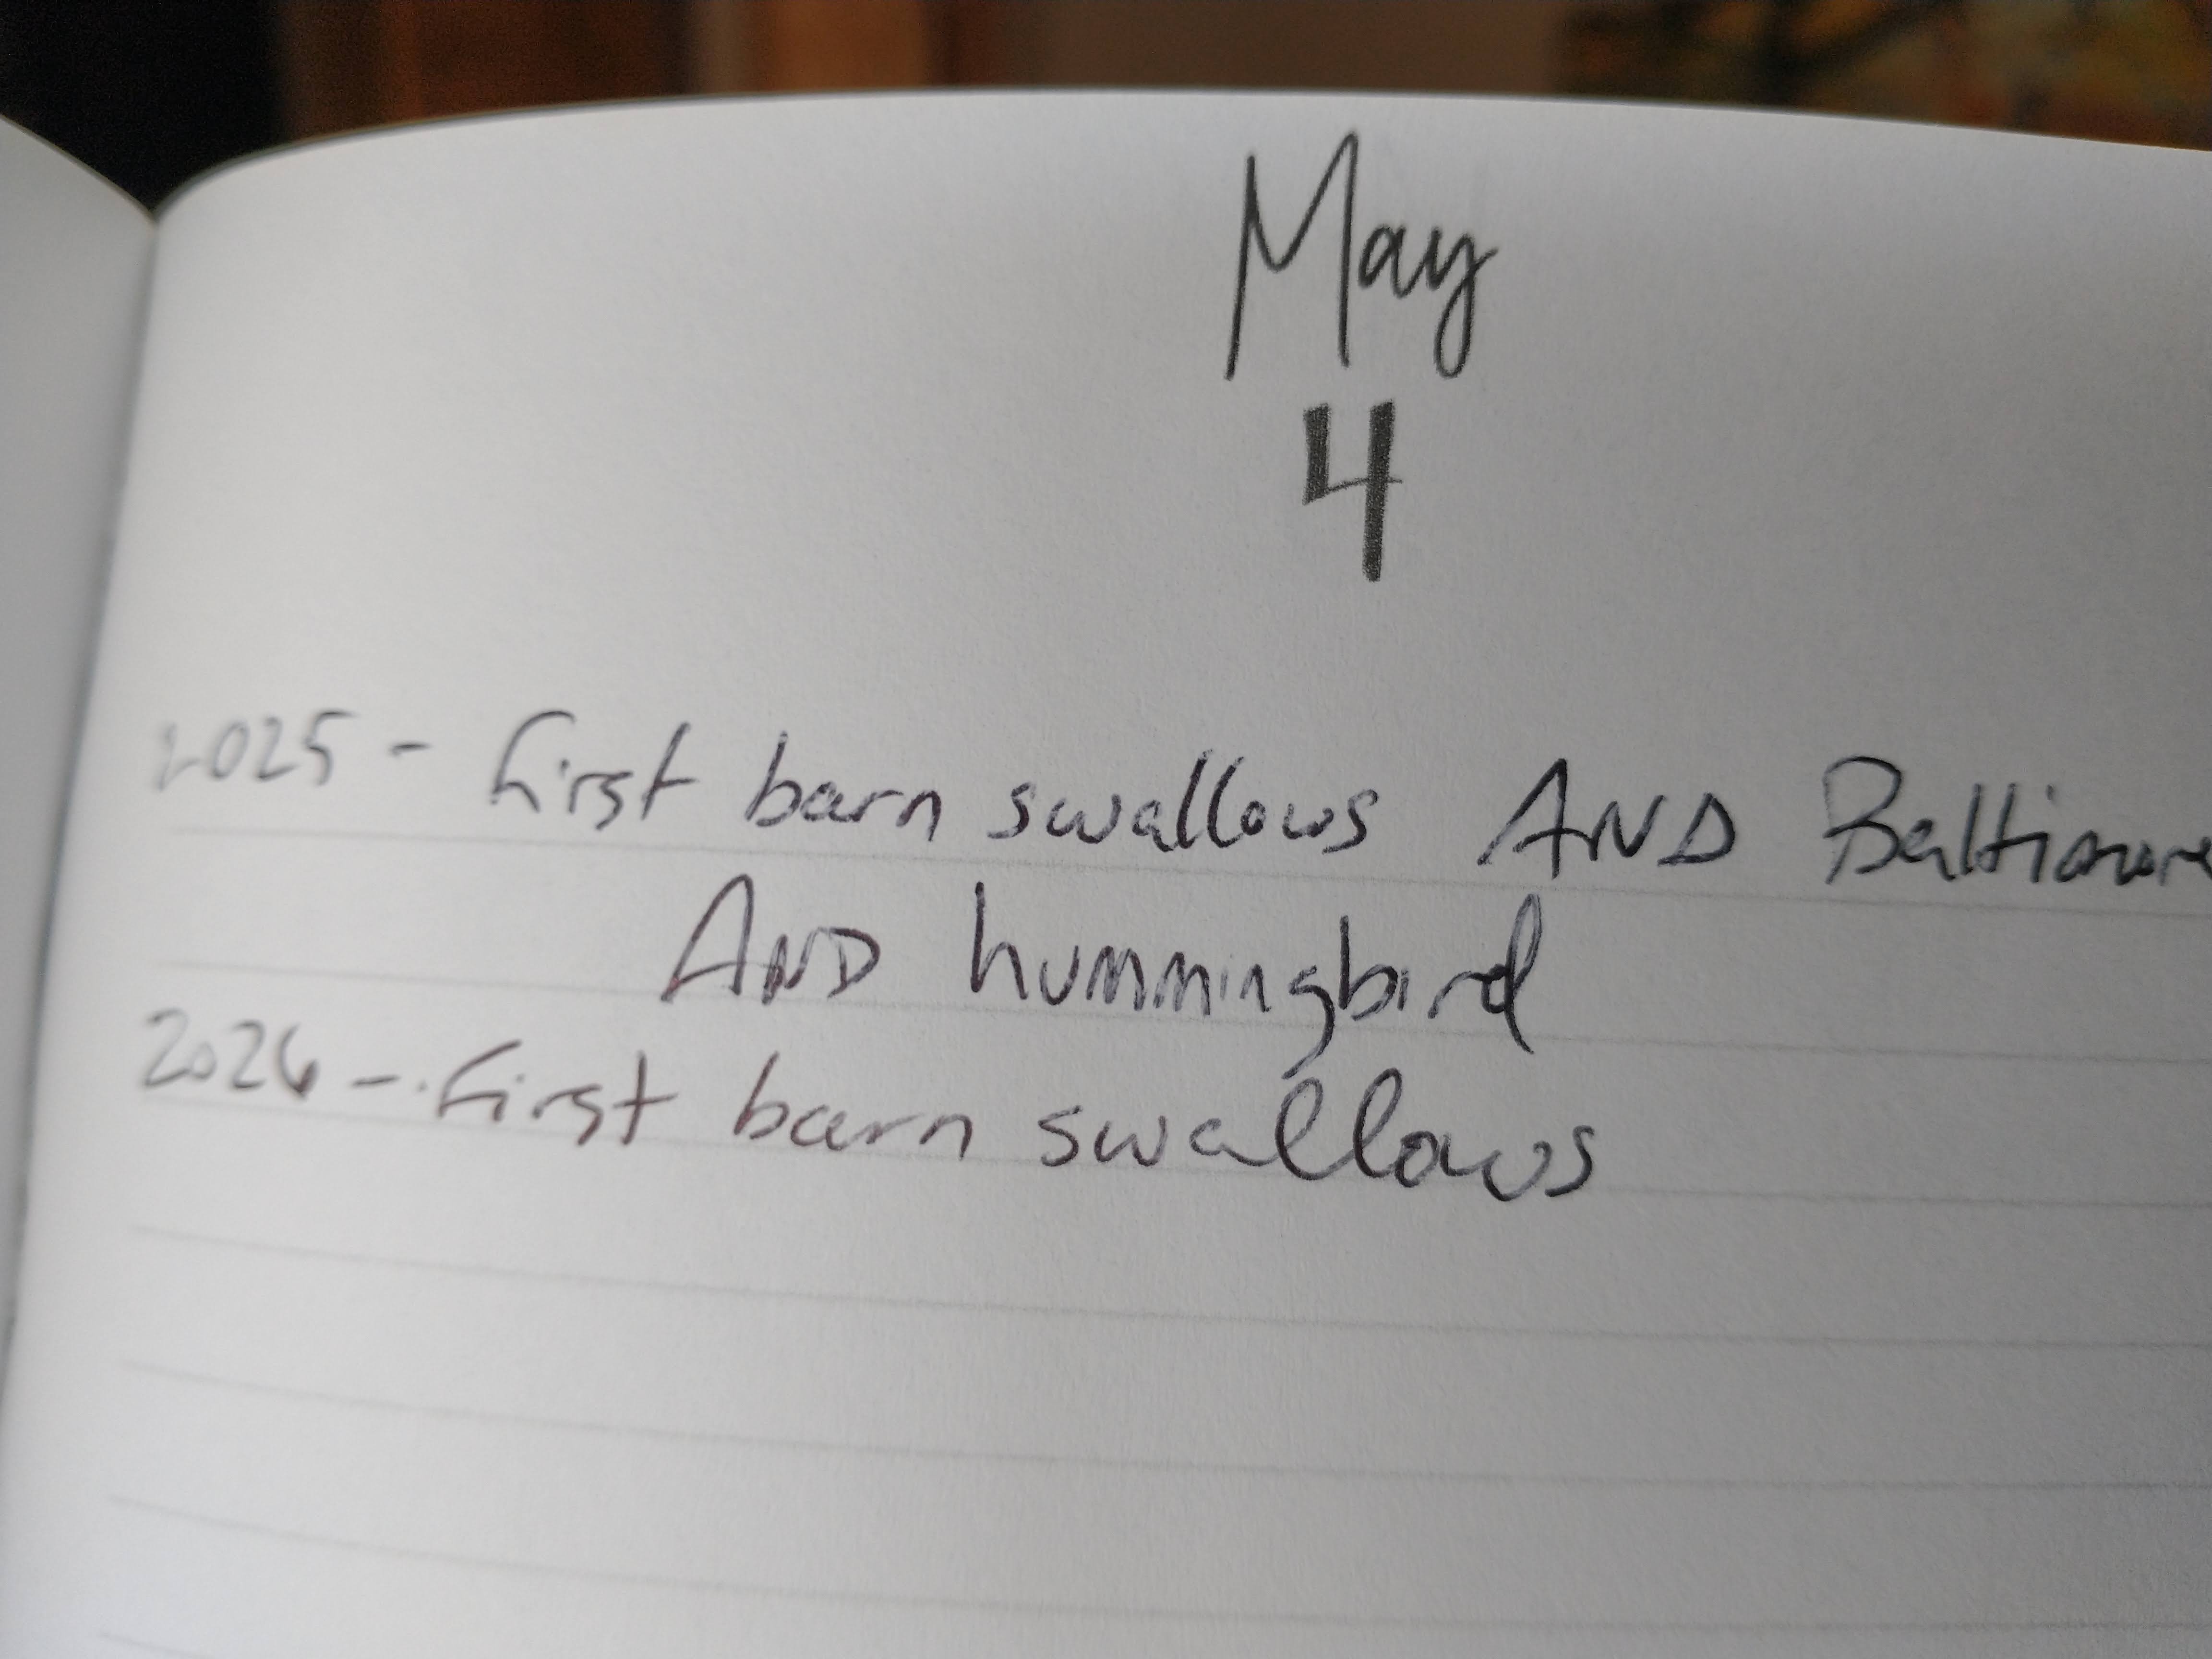 May
4
2025 - First barn swallows AND Baltimore
AND hummingbird
2026 - First barn swallows